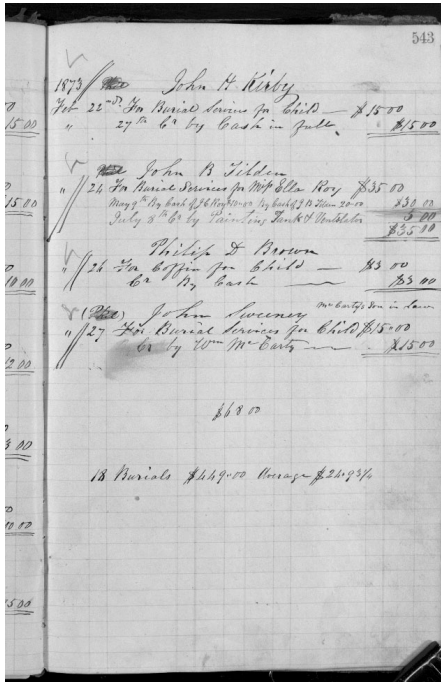 543
1873 John H. Kirby
Feb 22nd. For Burial Services for Child — $15.00
15.00 " 27th Cr by Cash in full $15.00
John B Tilden
" 24 For Burial Services for Ella Roy $35.00
15.00 May 9th By Cash of J C Roy 10.00 By Cash of J B Tilden 20.00 $30.00
July 8th Cr by Painting Tank & Ventilator 5.00
$35.00
Philip D Brown
" 26 For Coffin for Child — $3.00
10.00 Cr By Cash — $3.00
John Sweeney Mc Carty's Son in law
" 27 For Burial Services for Child $15.00
12.00 Cr by Wm Mc Carty — $15.00
$68.00
3.00
18 Burials $449.00 Average $24.93/4
10.00
15.00